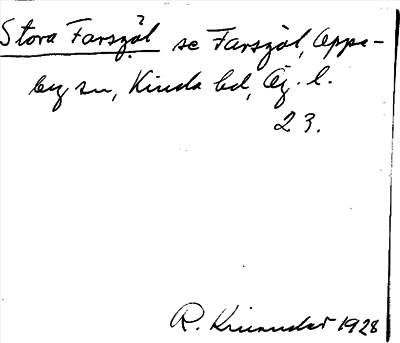 Stora Farsjöl se Farsjöl, Oppe-
by sn, Kinda hd, Ög. l.
23.
R. 1928